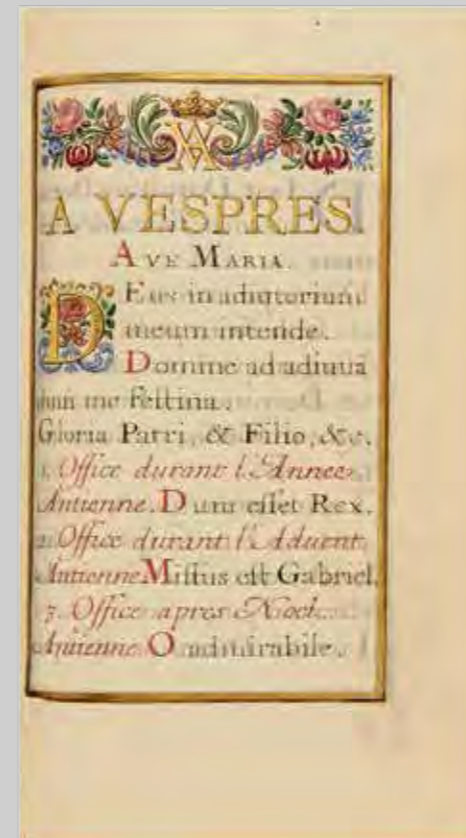 A VESPRES
AVE MARIA.
DEus in adiutorium
meum intende.
Domine ad adiuuā
dum me festina.
Gloria Patri, & Filio, &c.
1. Office durant l'Annee.
Antienne. Dum esset Rex.
2. Office durant l'Aduent.
Antienne Missus est Gabriel.
3. Office apres Noel.
Antienne. O admirabile.